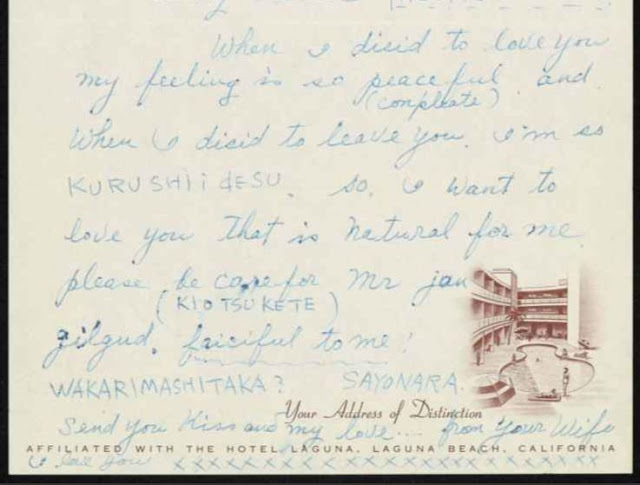 When I disid to love you
my feeling is so peaceful and
(conpleate)
When I disid to leave you. I'm so
KURUSHIi dESU. so. I want to
love you that is natural for me.
please be care for Mr jan
(KIOTSUKETE)
gilgud. faiciful to me!
WAKARIMASHITAKA? SAYONARA.
Your Address of Distinction
Send you Kiss and my love... from Your Wife
AFFILIATED WITH THE HOTEL LAGUNA, LAGUNA BEACH, CALIFORNIA
I love you xxxxxxxxxxxxxxxxxxxx